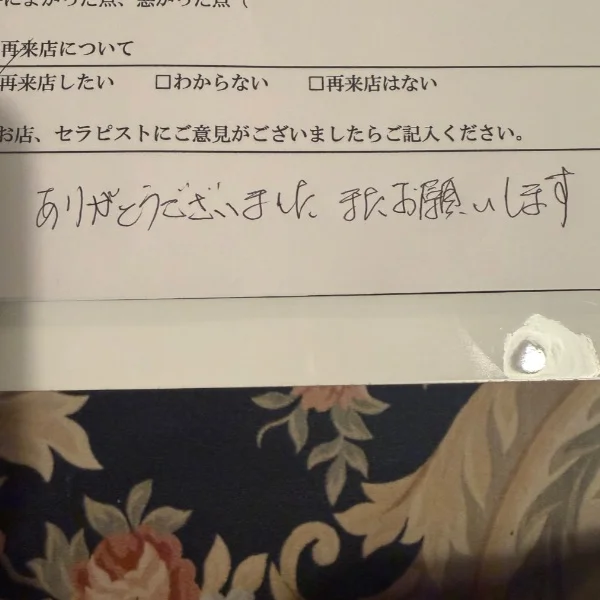 によかった点、悪かった点（
再来店について
再来店したい　□わからない　□再来店はない
お店、セラピストにご意見がございましたらご記入ください。
ありがとうございました またお願いします